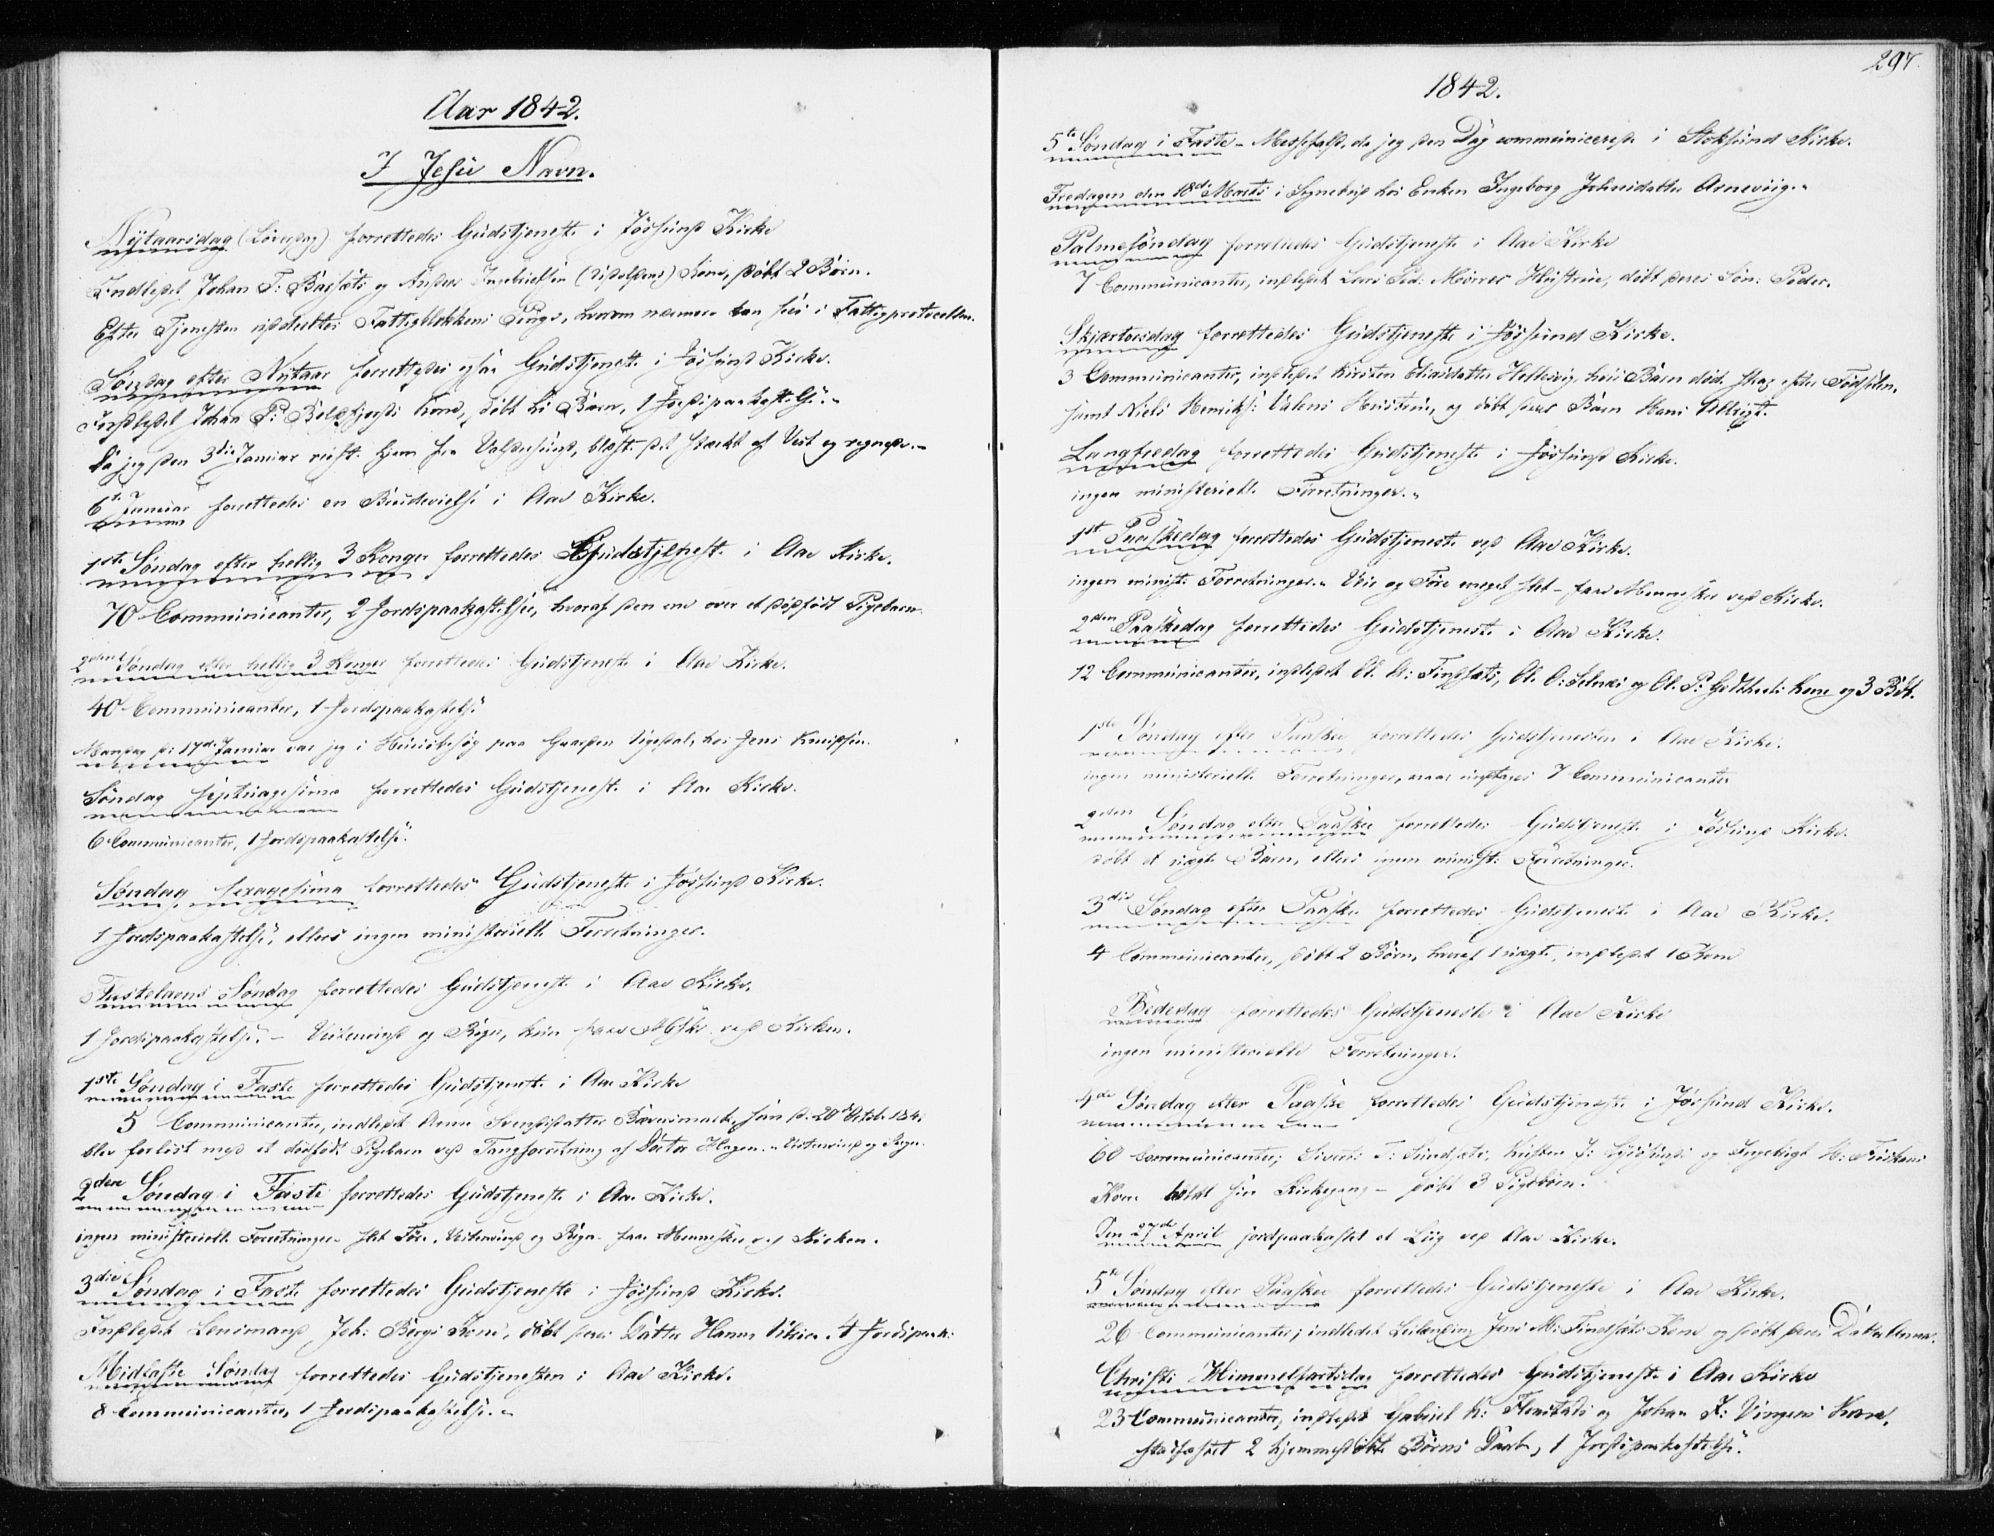 Aar 1842.
I Jesu Navn.
Nytaarsdag (Løverdag) forrettedes Gudstjeneste i Jøssund Kirke
Indledet Johan T: og Anders Kone, døbt 2 Børn.
Efter Tjenesten uddeeltes Fattigblokkens Penge, hvorom nærmere kan sees i Fattigprotocollen.
Søndag efter Nytaar forrettedes ogsaa Gudstjeneste i Jøssund Kirke.
Indledet Johan P: Kone, døbt Børn, 1 Jordspaakastelse.
Da jeg den 3die Januar reiste hjem fra Valdersund, blæste det stærkt af Vest og regnede.
6te Januar forrettedes en Brudevielse i Aae Kirke.
1ste Søndag efter hellig 3 Konger forrettedes Gudstjeneste i Aae Kirke.
70 Communicanter, 2 Jordspaakastelser, hvoraf den ene over et dødfødt Pigebarn.
2den Søndag efter hellig 3 Konger forrettedes Gudstjeneste i Aae Kirke.
40 Communicanter, 1 Jordspaakastelse
Mandag d: 17de Januar var jeg i Huusbesøg paa Gaarden hos Jens Knudsen.
Søndag septuagesima forrettedes Gudstjeneste i Aae Kirke.
6 Communicanter, 1 Jordspaakastelse.
Søndag sexagesima forrettedes Gudstjeneste i Jøssund Kirke.
1 Jordspaakastelse, ellers ingen ministerielle Forretninger.
Fastelavns Søndag forrettedes Gudstjeneste i Aae Kirke.
1 Jordspaakastelse. – og Regn, kun faae ved Kirken.
1ste Søndag i Faste forrettedes Gudstjeneste i Aae Kirke
5 Communicanter, indledet Anna hun d. 20de Octob: 1841
blev forløst med et dødfødt Pigebarn ved Tangforretning af Doctor Hagen. og Regn.
2den Søndag i Faste forrettedes Gudstjeneste i Aae Kirke.
ingen ministerielle Forretninger slet Føre. og Regn. faae Mennesker ved Kirken.
3die Søndag i Faste forrettedes Gudstjeneste i Jøssund Kirke.
Indledet Lensmand Joh: Bergs Kone, døbt deres Datter Hanna 4 Jordspaak:
Midfaste Søndag forrettedes Gudstjenesten i Aae Kirke.
8 Communicanter, 1 Jordspaakastelse.
297.
1842.
5te Søndag i Faste – Messefald, da jeg den Dag communicerede i Stoksund Kirke.
Fredagen den 18de Marts i Sognebud hos Enken Ingeborg Johnsdatter Arnevig.
Palmesøndag forrettedes Gudstjeneste i Aae Kirke
7 Communicanter, indledet Lars Ped: Hustrue, døbt deres Søn: Peder.
Skjærtorsdag forrettedes Gudstjeneste i Jøssund Kirke.
3 Communicanter, indledet Kirsten hvis Barn døde strax efter Fødselen,
samt Niels Henriks: Hustrue, og døbt deres Barn Hans
Langfredag forrettedes Gudstjeneste i Jøssund Kirke.
ingen ministerielle Forretninger.
1st Paaskedag forrettedes Gudstjeneste ved Aae Kirke.
ingen minist: Forretninger. Veir og Føre meget slet – faae Mennesker ved Kirke.
2den Paaskedag forrettedes Gudstjeneste i Aae Kirke.
12 Communicanter, indledet Ol. O: Selnæs og Ol. P: Kone og 3 Bør.
1ste Søndag efter Paaske forrettedes Gudstjenesten i Aae Kirke.
ingen ministerielle Forretninger, 7 Communicanter
2den Søndag efter Paaske forrettedes Gudstjeneste i Jøssund Kirke.
døbt et uægte Barn, ellers ingen minist: Forretninger.
3die Søndag efter Paaske forrettedes Gudstjeneste i Aae Kirke.
4 Communicanter, døbt 2 Børn, hvoraf 1 uægte, indledet 1 Kone
Bededag forrettedes Gudstjeneste i Aae Kirke
ingen ministerielle Forretninger.
4de Søndag efter Paaske forrettedes Gudstjeneste i Jøssund Kirke.
60 Communicanter; Sivert T: og
Kone holdt sin Kirkegang – døbt 3 Pigebørn.
Den 27de April jordpaakastet et Liig ved Aae Kirke.
5te Søndag efter Paaske forrettedes Gudstjeneste i Aae Kirke.
26 Communicanter; indledet Jens M: Kone og døbt deres Datter Anna.
Christi Himmelfartsdag forrettedes Gudstjeneste i Aae Kirke
23 Communicanter, indledet Gabriel og Johan Kone,
stadfæstet 2 hjemmedøbte Børns Daab, 1 Jordspaakastelse.